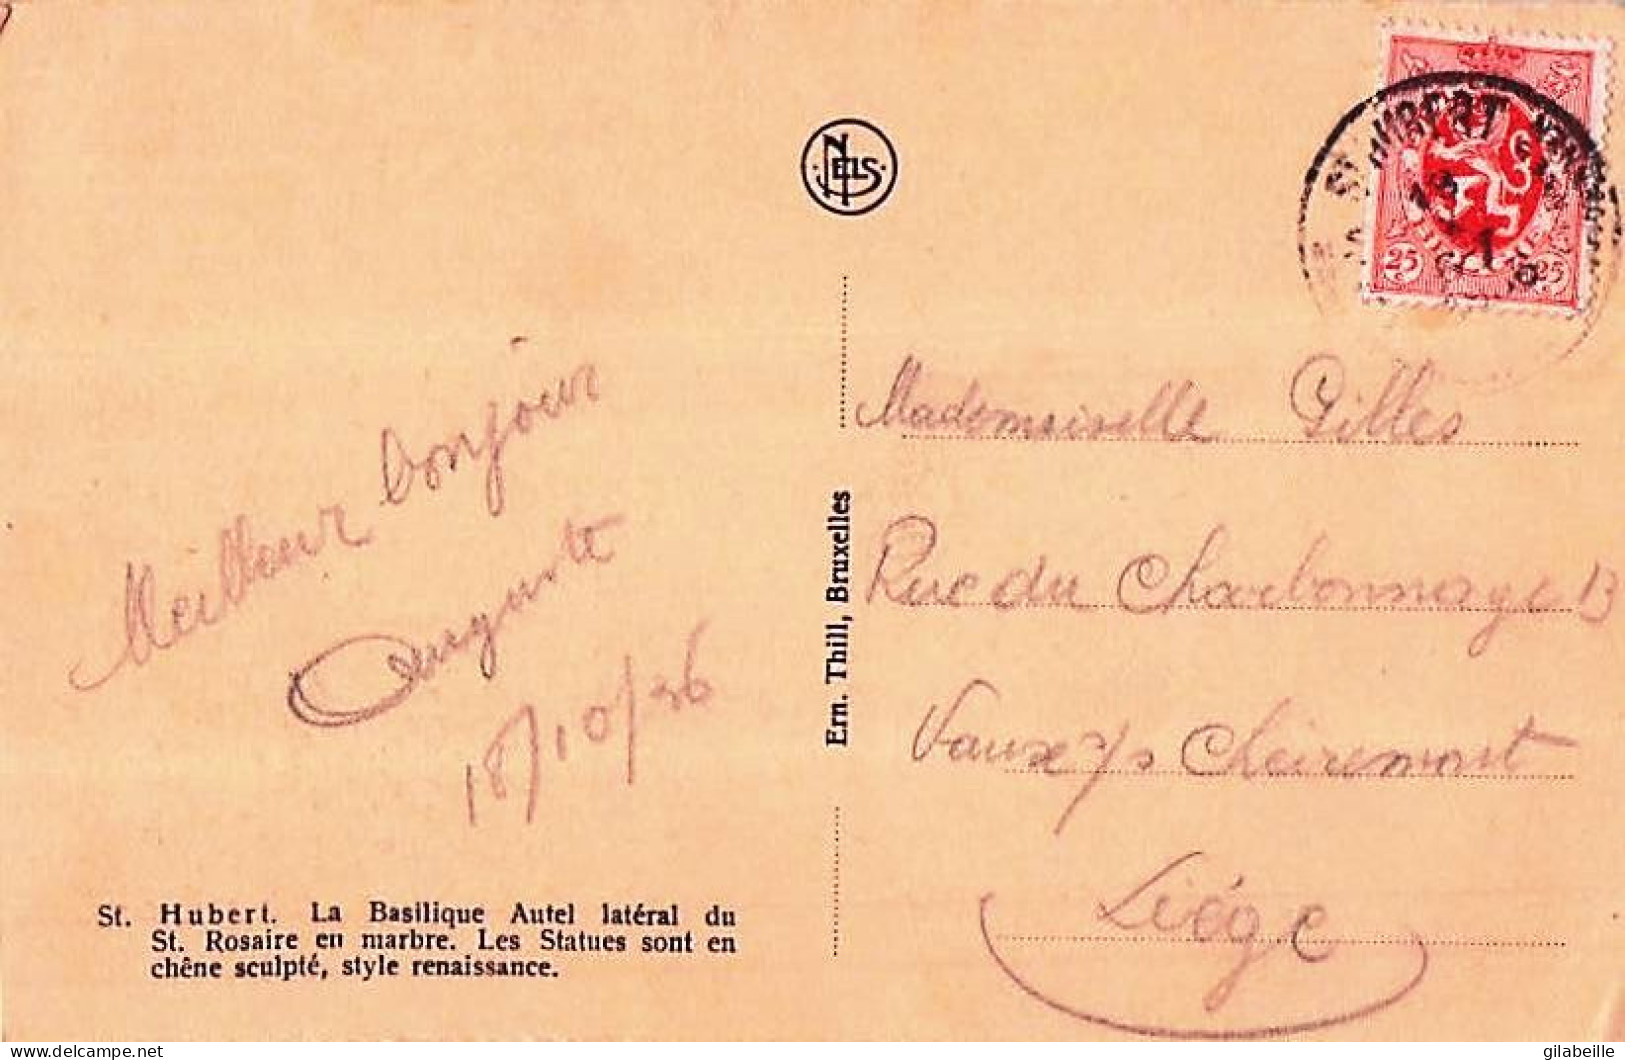 NELS
ST HUBERT
25 25
Meilleur bonjour
Auguste
18/10/36
Mademoiselle Gilles
Rue du Charbonnage 13
Vaux s/s Chèvremont
Liége
Ern. Thill, Bruxelles
St. Hubert. La Basilique Autel latéral du
St. Rosaire en marbre. Les Statues sont en
chêne sculpté, style renaissance.
delcampe.net
gilabeille